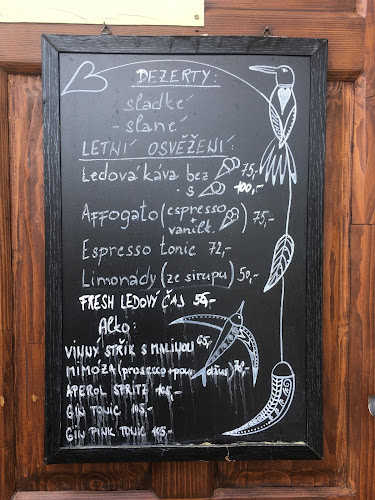 DEZERTY:
- sladké
- slané
LETNÍ OSVĚŽENÍ:
Ledová káva bez 75,-
s 100,-
Affogato (espresso + vanilk.) 75,-
Espresso tonic 72,-
Limonády (ze sirupu) 50,-
FRESH LEDOVÝ ČAJ 55,-
Alko:
VINNÝ STŘIK S MALINOU 65,-
MIMÓZA (prosecco+pom. džus)
APEROL SPRITZ
GIN TONIC 115,-
GIN PINK TONIC